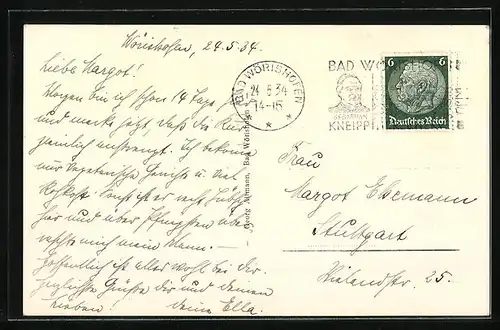 Wörishofen, 24.5.34.
Liebe Margot!
Morgen bin ich schon 14 Tage hier
und merke jetzt, daß die Kur
ziemlich anstrengt. Ich bekomme
nur vegetarische Gerichte u. viel
Rohkost. Sonst ist es recht hübsch
hier und über Pfingsten über-
raschte mich mein Mann. —
Hoffentlich ist alles wohl bei Dir.
Herzlichste Grüße Dir und Deinen
Lieben. Deine Ella.
Georg Altmann, Bad Wörishofen
BAD WÖRISHOFEN
24.5.34
14-15
* *
BAD WÖRISHOFEN
SEBASTIAN
KNEIPP
6 6
Deutsches Reich
Frau
Margot
Stuttgart
Wielandstr. 25.